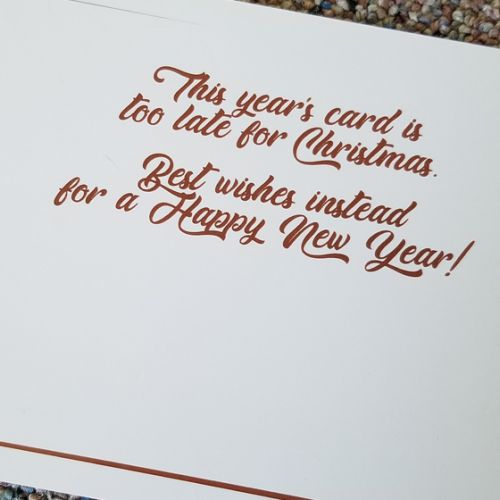 This year's card is
too late for Christmas.
Best wishes instead
for a Happy New Year!